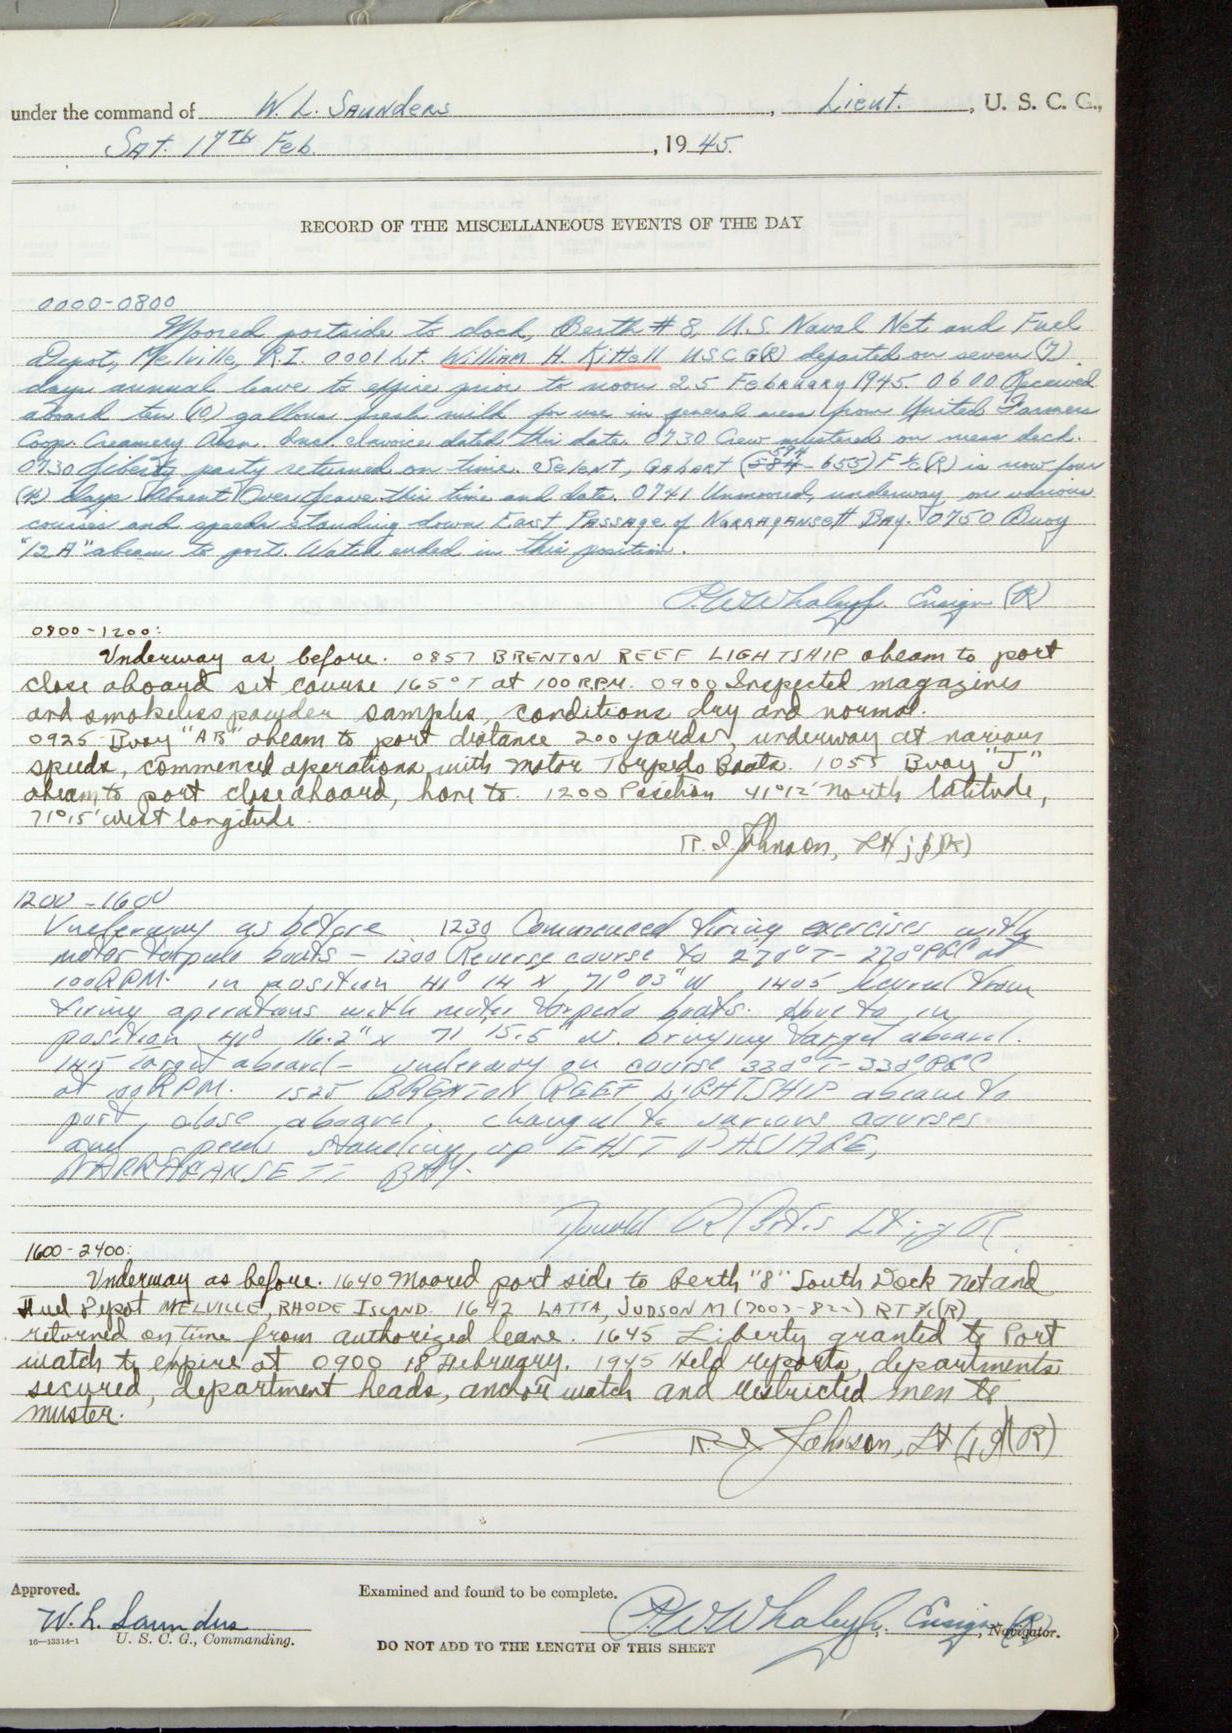 under the command of W. L. Saunders, Lieut., U. S. C. G.,
Sat. 17th Feb., 1945.
RECORD OF THE MISCELLANEOUS EVENTS OF THE DAY
0000-0800
Moored portside to dock, Berth # 8, U.S. Naval Net and Fuel
Depot, Melville, R.I. 0001 Lt. William H. Kittell USCG(R) departed on seven (7)
days annual leave to expire prior to noon 25 February 1945. 0600 Received
aboard ten (10) gallons fresh milk for use in general mess from United Farmers
Coop. Creamery Assn. Inc. Invoice dated this date. 0730 Crew mustered on mess deck.
0730 Liberty party returned on time. Gabart ( - 655) F 1/c (R) is now four
(4) days Absent Over Leave this time and date. 0741 Unmoored, underway on various
courses and speeds standing down East Passage of Narragansett Bay. 0750 Buoy
"12A" abeam to port. Watch ended in this position.
P.W. Whaley Jr. Ensign (R)
0800-1200:
Underway as before. 0857 BRENTON REEF LIGHTSHIP abeam to port
close aboard set course 165° T at 100 R.P.M. 0900 Inspected magazines
and smokeless powder samples, conditions dry and normal.
0925 Buoy "AB" abeam to port distance 200 yards, underway at various
speeds, commenced operations with Motor Torpedo Boats. 1055 Buoy "J"
abeam to port close aboard, hove to. 1200 Position 41°12' North latitude,
71°15' west longitude.
R. I. Johnson, Lt jg (R)
1200-1600
Underway as before 1230 Commenced firing exercises with
motor torpedo boats - 1300 Reverse course to 270° T - 270° PGC at
100 RPM. in position 41° 14 N 71° 03" W 1405 from
firing operations with motor torpedo boats. Hove to in
position 41° 16.2" N 71 15.5" W. bringing target aboard.
target aboard - underway on course 330° T - 330° PGC
at 100 RPM. 1525 BRENTON REEF LIGHTSHIP abeam to
port, close aboard, changed to various courses
and speeds standing up EAST PASSAGE,
NARRAGANSETT BAY.
Lt. jg R
1600-2400:
Underway as before. 1640 Moored port side to berth "8" South Dock Net and
Fuel Depot MELVILLE, RHODE ISLAND. 1642 LATTA, JUDSON M (7007-822) RT 2/c (R)
returned on time from authorized leave. 1645 Liberty granted to Port
watch to expire at 0900 18 February. 1945 Held reports, departments
secured, department heads, anchor watch and restricted men to
muster.
R. I. Johnson, Lt (jg) (R)
Approved.
Examined and found to be complete.
W. L. Saunders
P.W. Whaley Jr. Ensign (R), Navigator.
16-13314-1 U. S. C. G., Commanding.
DO NOT ADD TO THE LENGTH OF THIS SHEET